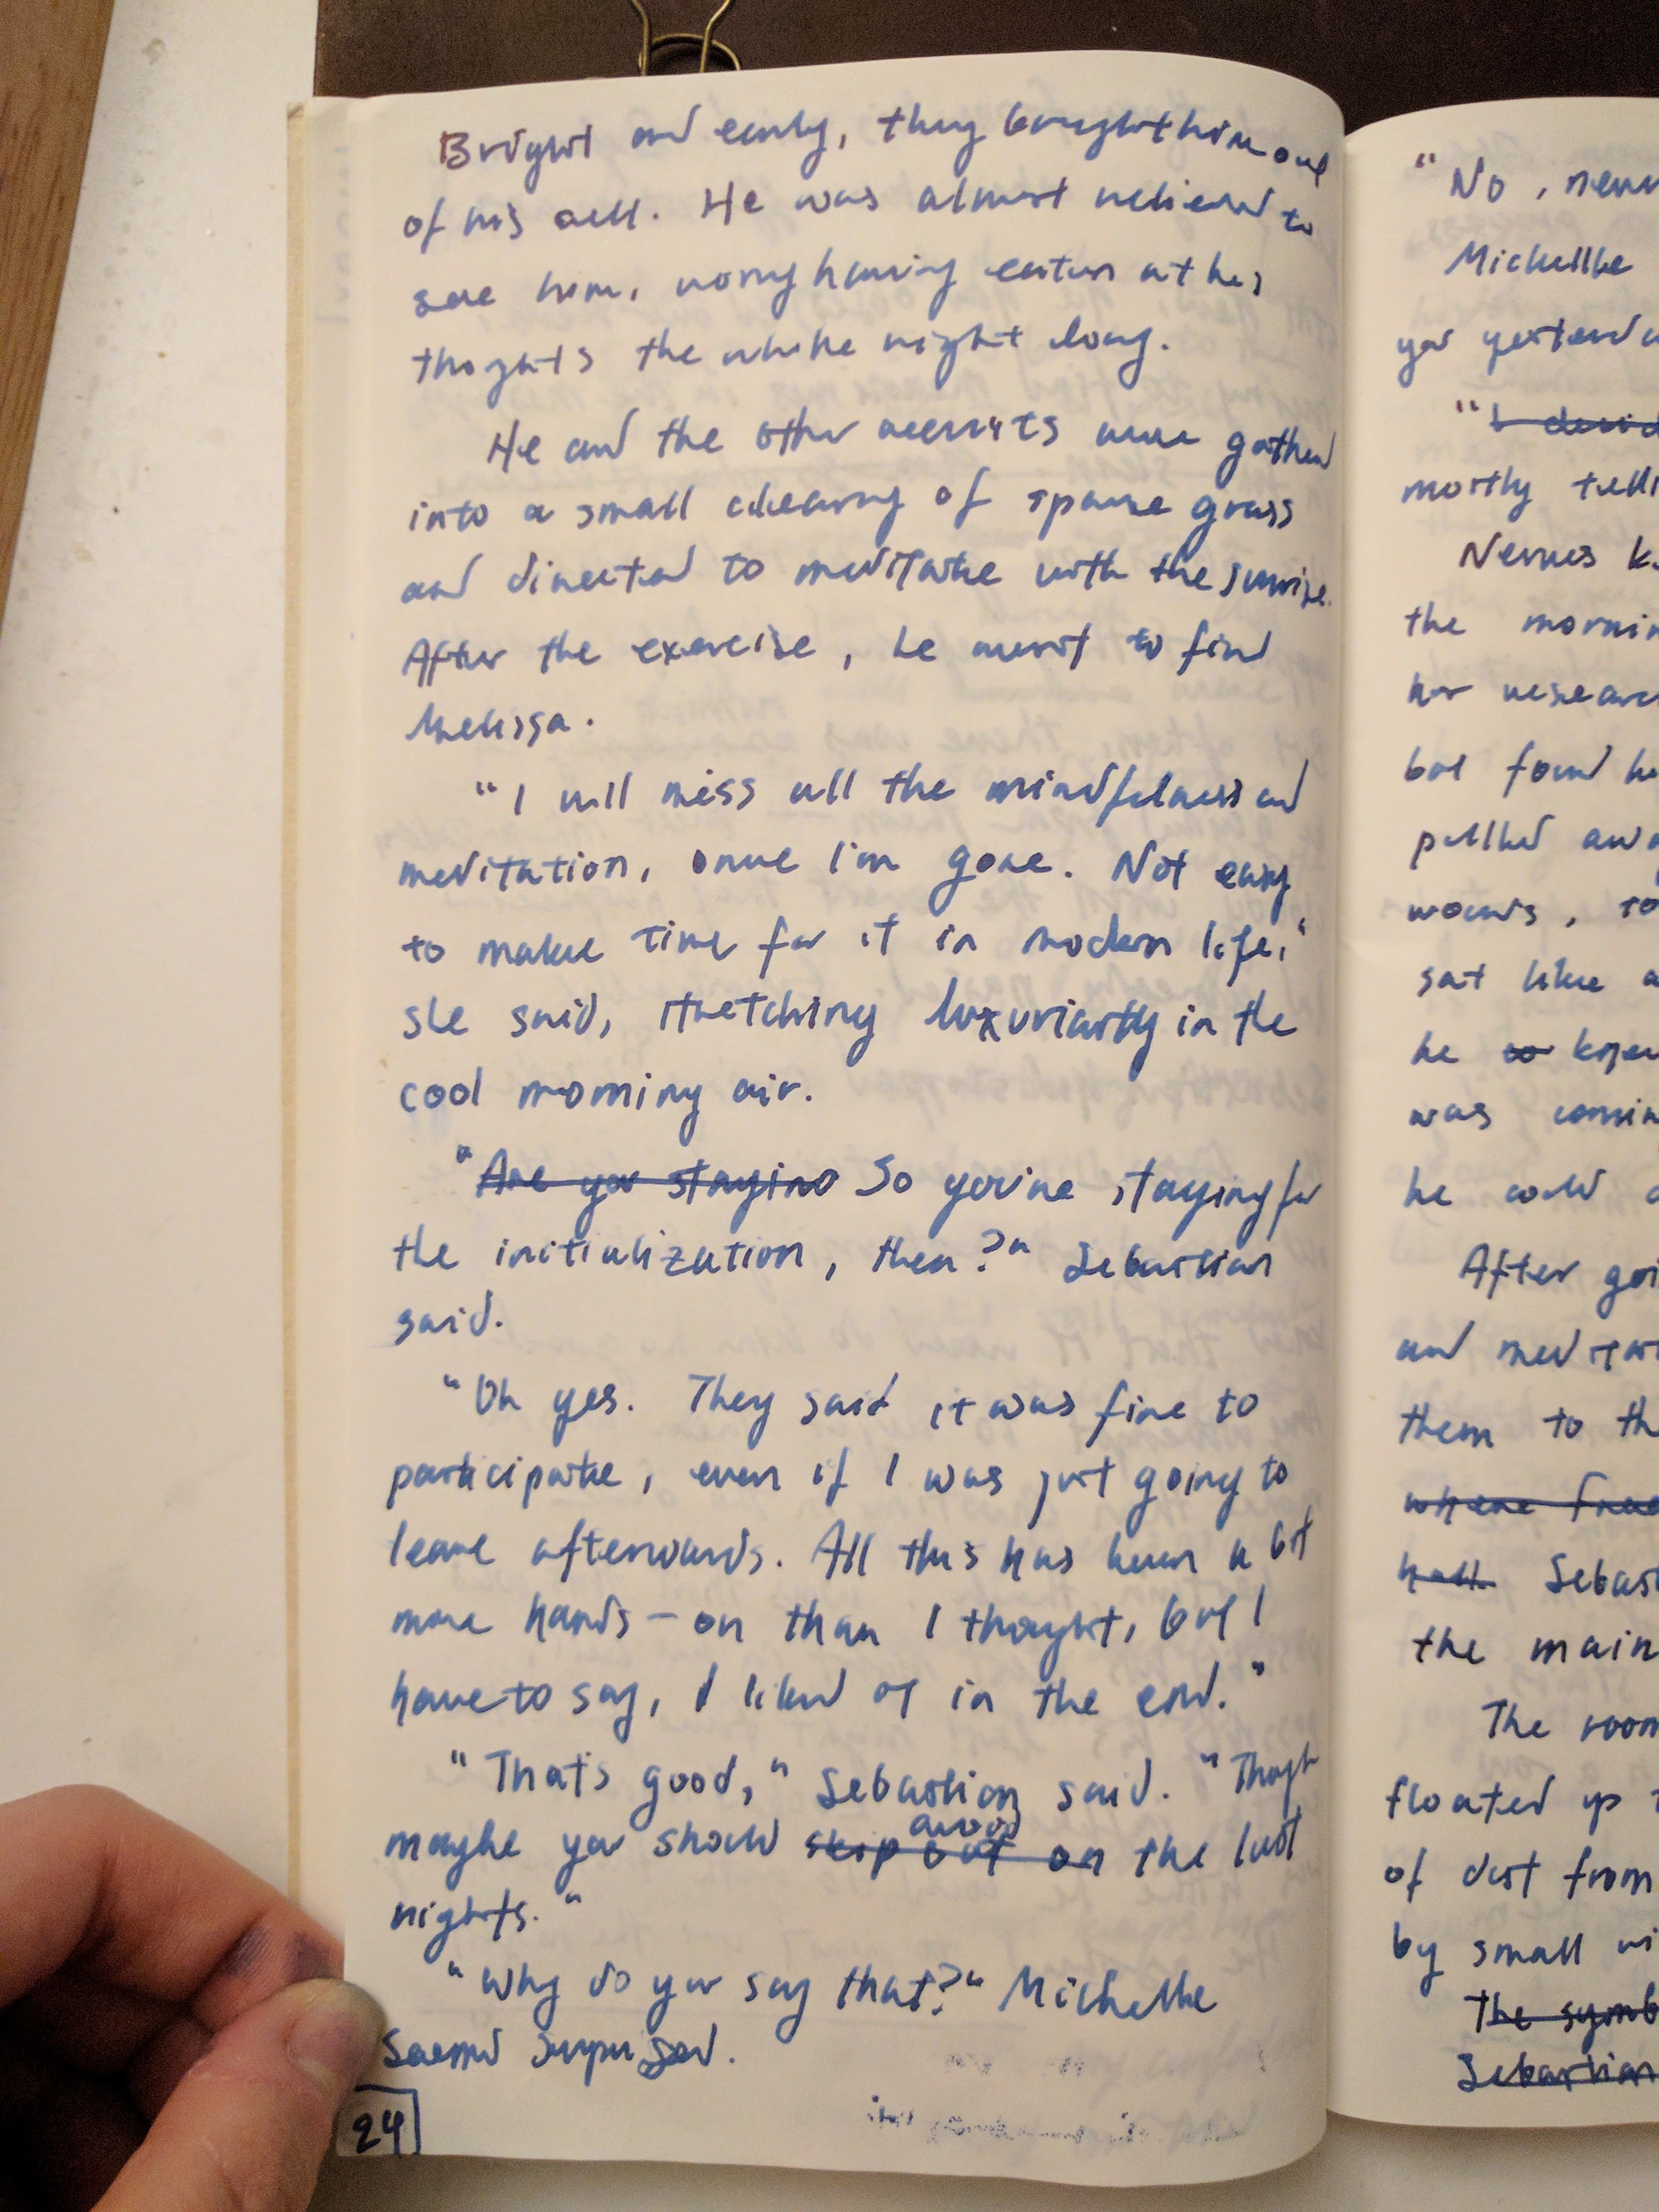 Bright and early, they brought him out
of his cell. He was almost relieved to
see him, worry having eaten at his
thoghts the whole night long.
He and the other recruits were gathered
into a small clearing of sparse grass
and directed to meditate with the sunrise.
After the exercise, he went to find
Melissa.
"I will miss all the mindfulness and
meditation, once I'm gone. Not easy
to make time for it in modern life,"
she said, stretching luxuriantly in the
cool morning air.
"Are you staying So you're staying for
the initialization, then?" Sebastian
said.
"Oh yes. They said it was fine to
participate, even if I was just going to
leave afterwards. All this has been a bit
more hands-on than I thought, but I
have to say, I liked it in the end."
"That's good," Sebastian said. "Though
avoid
maybe you should skip out on the last
nights."
"Why do you say that?" Michelle
seemed surprised.
24
"No, never
Michellle
you yesterd
"I decid
mostly tell
Nerves k
the mornin
her researc
but found h
pulled awa
words, to
sat like a
he so knew
was comin
he could
After goi
and meditat
them to th
where
hall. Sebast
the main
The room
floated up
of dust from
by small wi
The symb
Sebastian